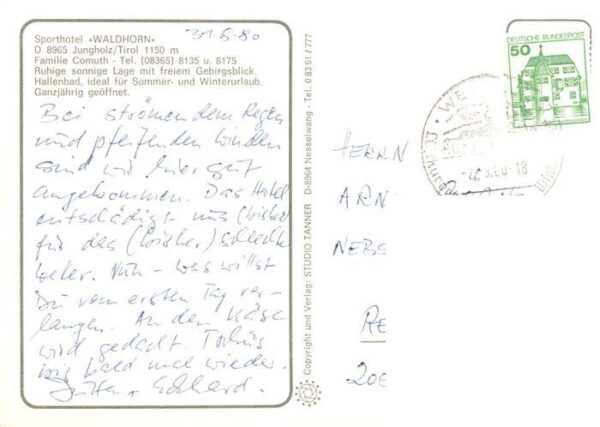 Sporthotel «WALDHORN»
D 8965 Jungholz/Tirol 1150 m
Familie Comuth - Tel. (08365) 8135 u. 8175
Ruhige sonnige Lage mit freiem Gebirgsblick.
Hallenbad, ideal für Sommer- und Winterurlaub.
Ganzjährig geöffnet.
31.8.80
Bei strömendem Regen
und pfeifenden Winden
sind wir hier gut
angekommen. Das Hotel
entschädigt uns (bisher)
für das (bisher) schlechte
Wetter. Nun - was willst
Du vom ersten Tag ver-
langen. An den Käse
wird gedacht.
bald mal wieder.
Jutta + Eckhard.
Copyright und Verlag: STUDIO TANNER D-8964 Nesselwang - Tel. 08361/777
DEUTSCHE BUNDESPOST
50
HERRN
ARN
NEBS
RE